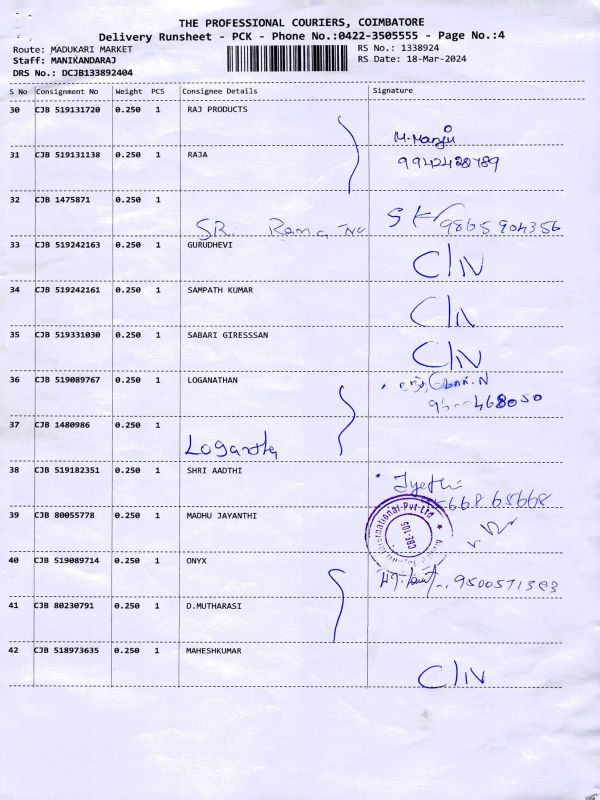 THE PROFESSIONAL COURIERS, COIMBATORE
Delivery Runsheet - PCK - Phone No.:0422-3505555 - Page No.:4
Route: MADUKARI MARKET RS No.: 1338924
Staff: MANIKANDARAJ RS Date: 18-Mar-2024
DRS No.: DCJB133892404
S No Consignment No Weight PCS Consignee Details Signature
30 CJB 519131720 0.250 1 RAJ PRODUCTS
M. Manju
31 CJB 519131138 0.250 1 RAJA
9942428789
32 CJB 1475871 0.250 1
SR. Rama SK 9865904356
33 CJB 519242163 0.250 1 GURUDHEVI
C/N
34 CJB 519242161 0.250 1 SAMPATH KUMAR
C/N
35 CJB 519331030 0.250 1 SABARI GIRESSSAN
C/N
36 CJB 519089767 0.250 1 LOGANATHAN
468050
37 CJB 1480986 0.250 1
38 CJB 519182351 0.250 1 SHRI AADTHI
668 65668
39 CJB 80055778 0.250 1 MADHU JAYANTHI
International Pvt Ltd
CBE-105
40 CJB 519089714 0.250 1 ONYX
9500571383
41 CJB 80230791 0.250 1 D.MUTHARASI
42 CJB 518973635 0.250 1 MAHESHKUMAR
C/N